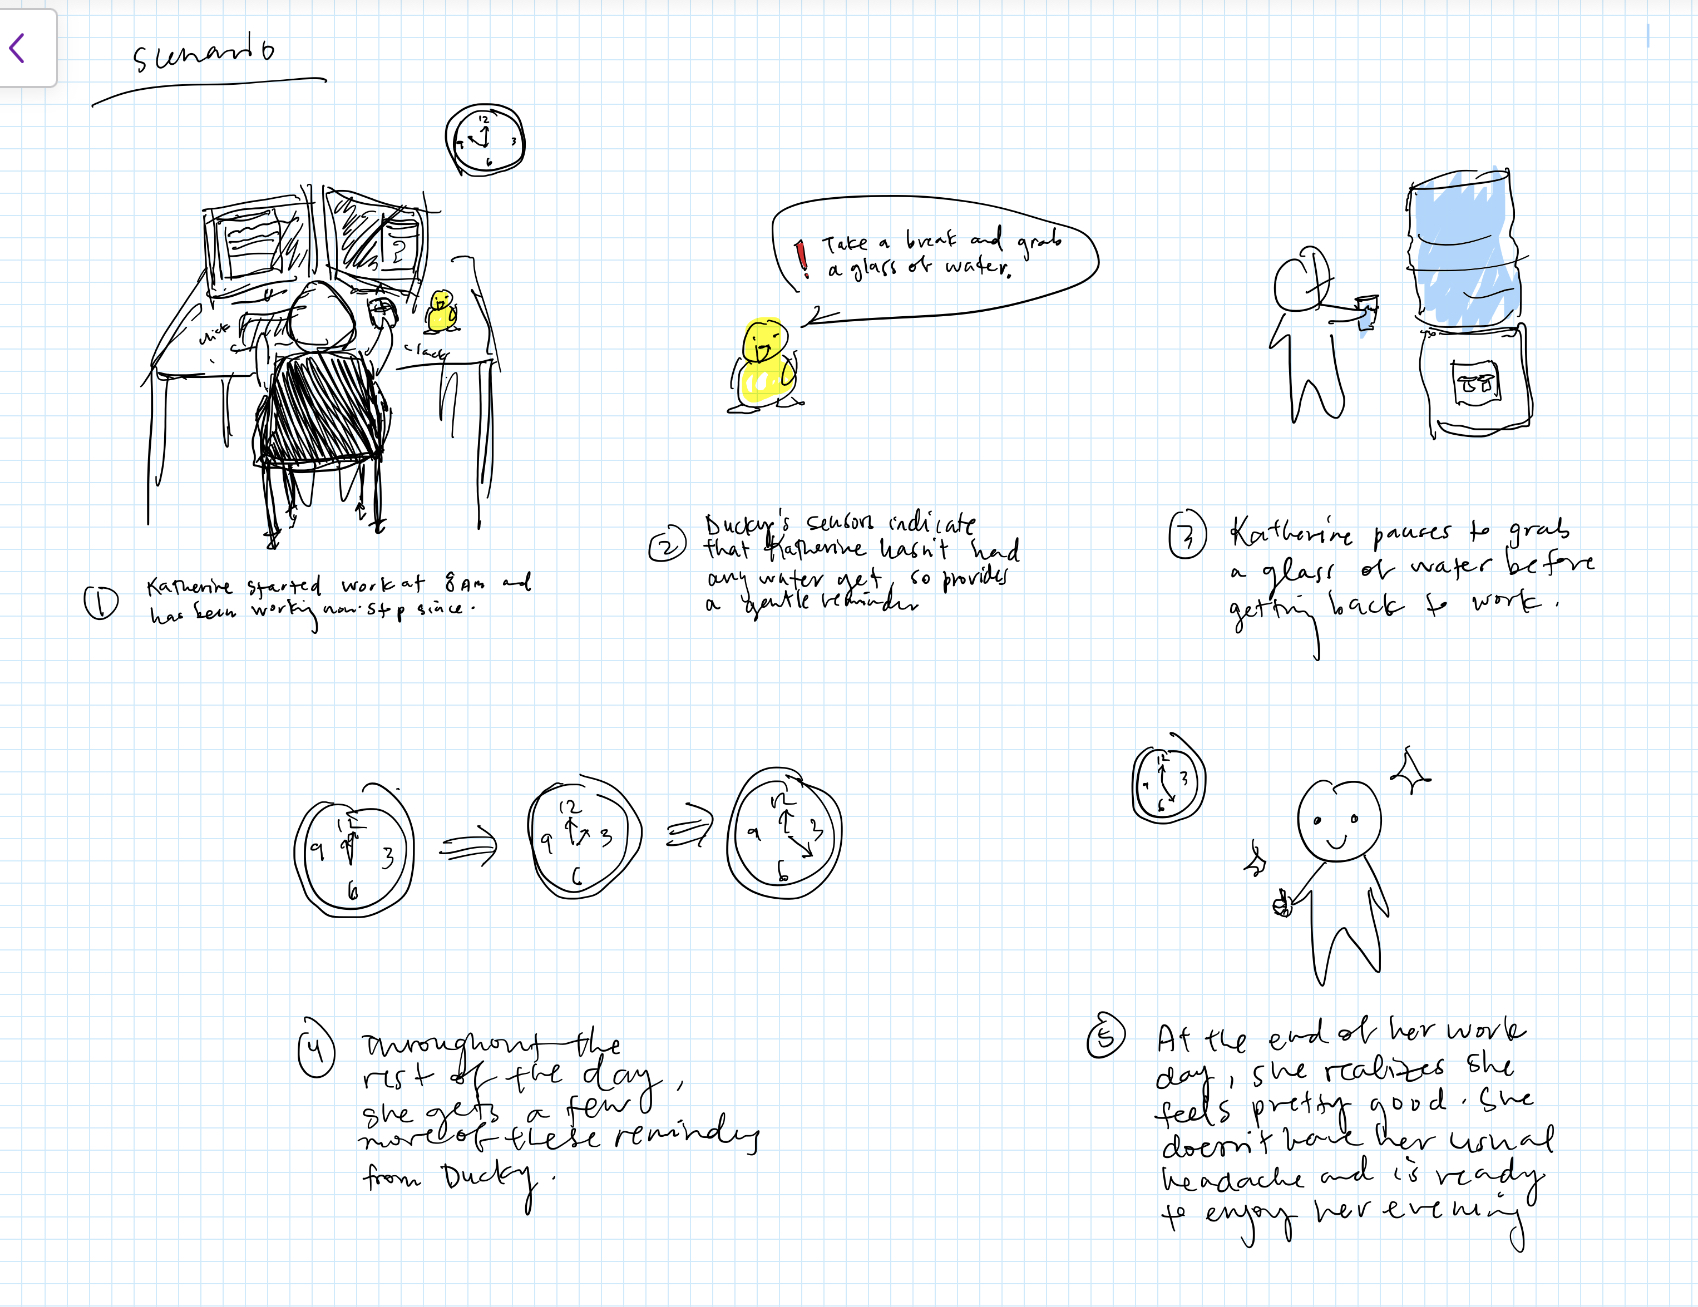 scenario
12
3
6
9
click
clack
?
! Take a break and grab
a glass of water.
① Katherine started work at 8AM and
has been working non-stop since.
② Ducky's sensors indicate
that Katherine hasn't had
any water yet, so provides
a gentle reminder
③ Katherine pauses to grab
a glass of water before
getting back to work.
12
9
3
6
12
9
3
6
12
9
3
6
④ Throughout the
rest of the day,
she gets a few
more of these reminders
from Ducky.
12
9
3
6
⑤ At the end of her work
day, she realizes she
feels pretty good. She
doesn't have her usual
headache and is ready
to enjoy her evening